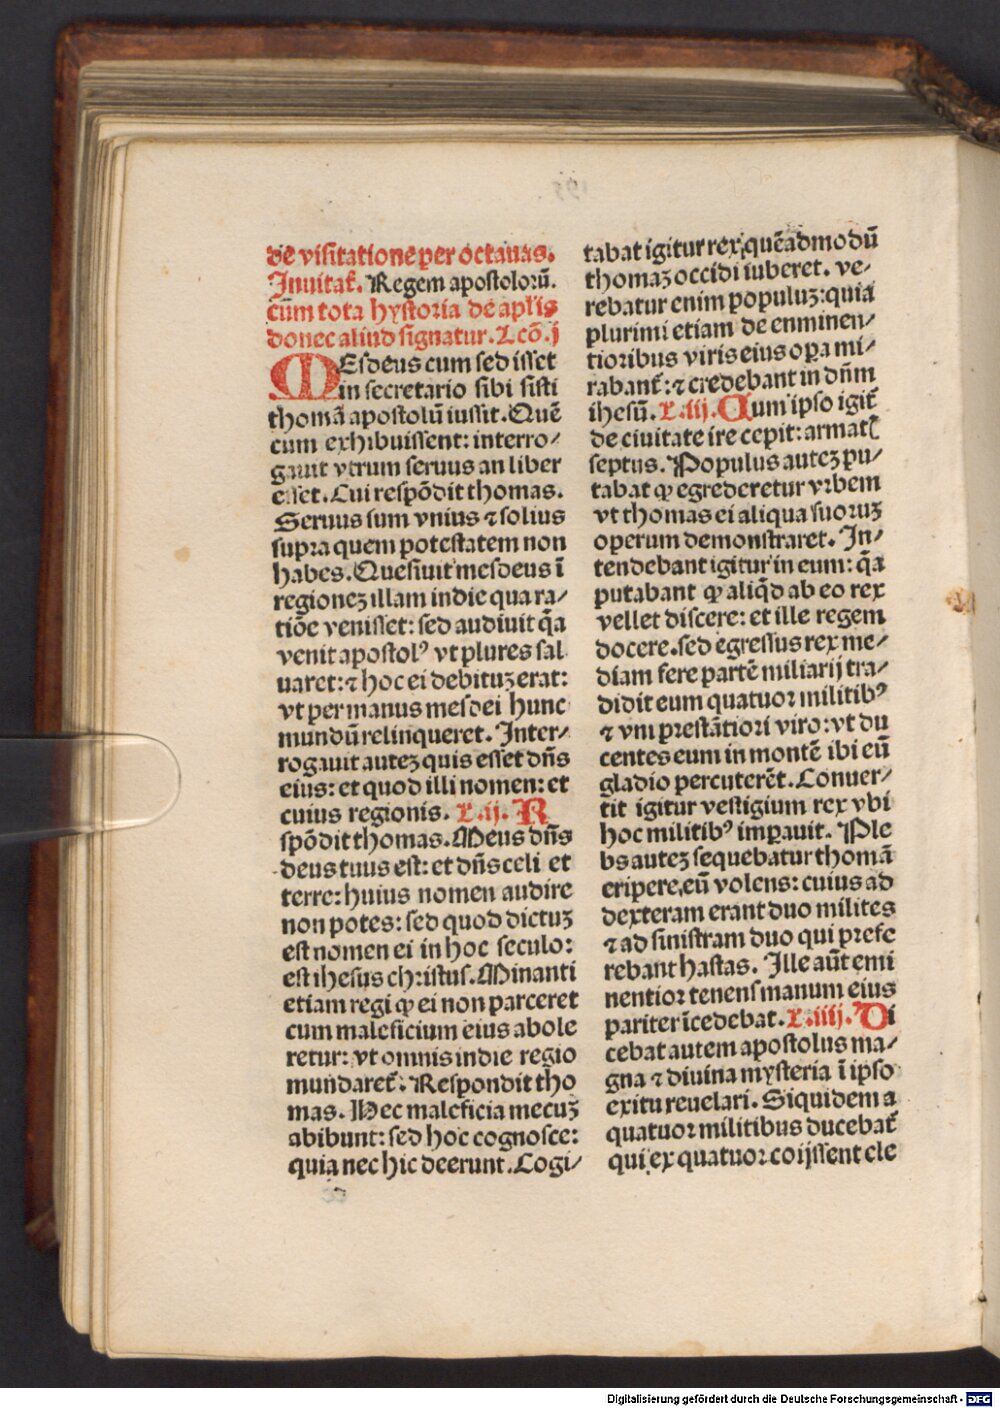 de visitatione per octauas.
Inuitat̄. Regem apostoloꝝ̄.
cum tota hystoria de aplis
donec aliud signatur. Lcō. j
MEsdeus cum sedisset
in secretario sibi sisti
thomā apostolū iussit. Quē
cum exhibuissent: interro⸗
gauit vtrum seruus an liber
esset. Cui respōdit thomas.
Seruus sum vnius ⁊ solius
supra quem potestatem non
habes. Quesiuit mesdeus ī
regionez illam indie qua ra⸗
tiōe venisset: sed audiuit q̄a
venit apostolꝰ vt plures sal
uaret: ⁊ hoc ei debituz erat:
vt per manus mesdei hunc
mundū relinqueret. Inter⸗
rogauit autez quis esset dn̄s
eius: et quod illi nomen: et
cuius regionis. L. ij. R
spōdit thomas. Meus dn̄s
deus tuus est: et dn̄s celi et
terre: huius nomen audire
non potes: sed quod dictuz
est nomen ei in hoc seculo:
est ihesus christus. Minanti
etiam regi ꝙ ei non parceret
cum maleficium eius abole
retur: vt omnis indie regio
mundaret̄. Respondit tho
mas. Hec maleficia mecuz
abibunt: sed hoc cognosce:
quia nec hic deerunt. Cogi⸗
tabat igitur rex, quēadmodū
thomaz occidi iuberet. ve⸗
rebatur enim populuz: quia
plurimi etiam de enminen⸗
tioribus viris eius oꝑa mi⸗
rabant̄: ⁊ credebant in dn̄m
ihesū. L. iij. Cum ipso igit̄
de ciuitate ire cepit: armatꝭ
septus. Populus autez pu⸗
tabat ꝙ egrederetur vrbem
vt thomas ei aliqua suoruz
operum demonstraret. In⸗
tendebant igitur in eum: q̄a
putabant ꝙ aliq̄d ab eo rex
vellet discere: et ille regem
docere. sed egressus rex me⸗
diam fere partē miliarij tra⸗
didit eum quatuor militibꝰ
⁊ vni prestātiori viro: vt du
centes eum in montē ibi eū
gladio percuterēt. Conuer⸗
tit igitur vestigium rex vbi
hoc militibꝰ imꝑauit. Ple
bs autez sequebatur thomā
eripere, eū volens: cuius ad
dexteram erant duo milites
⁊ ad sinistram duo qui prefe
rebant hastas. Ille aūt emi
nentior tenens manum eius
pariter īcedebat. L. iiij. Di
cebat autem apostolus ma⸗
gna ⁊ diuina mysteria ī ipso
exitu reuelari. Siquidem a
quatuor militibus ducebat̄
qui ex quatuor coijssent ele
Digitalisierung gefördert durch die Deutsche Forschungsgemeinschaft - DFG